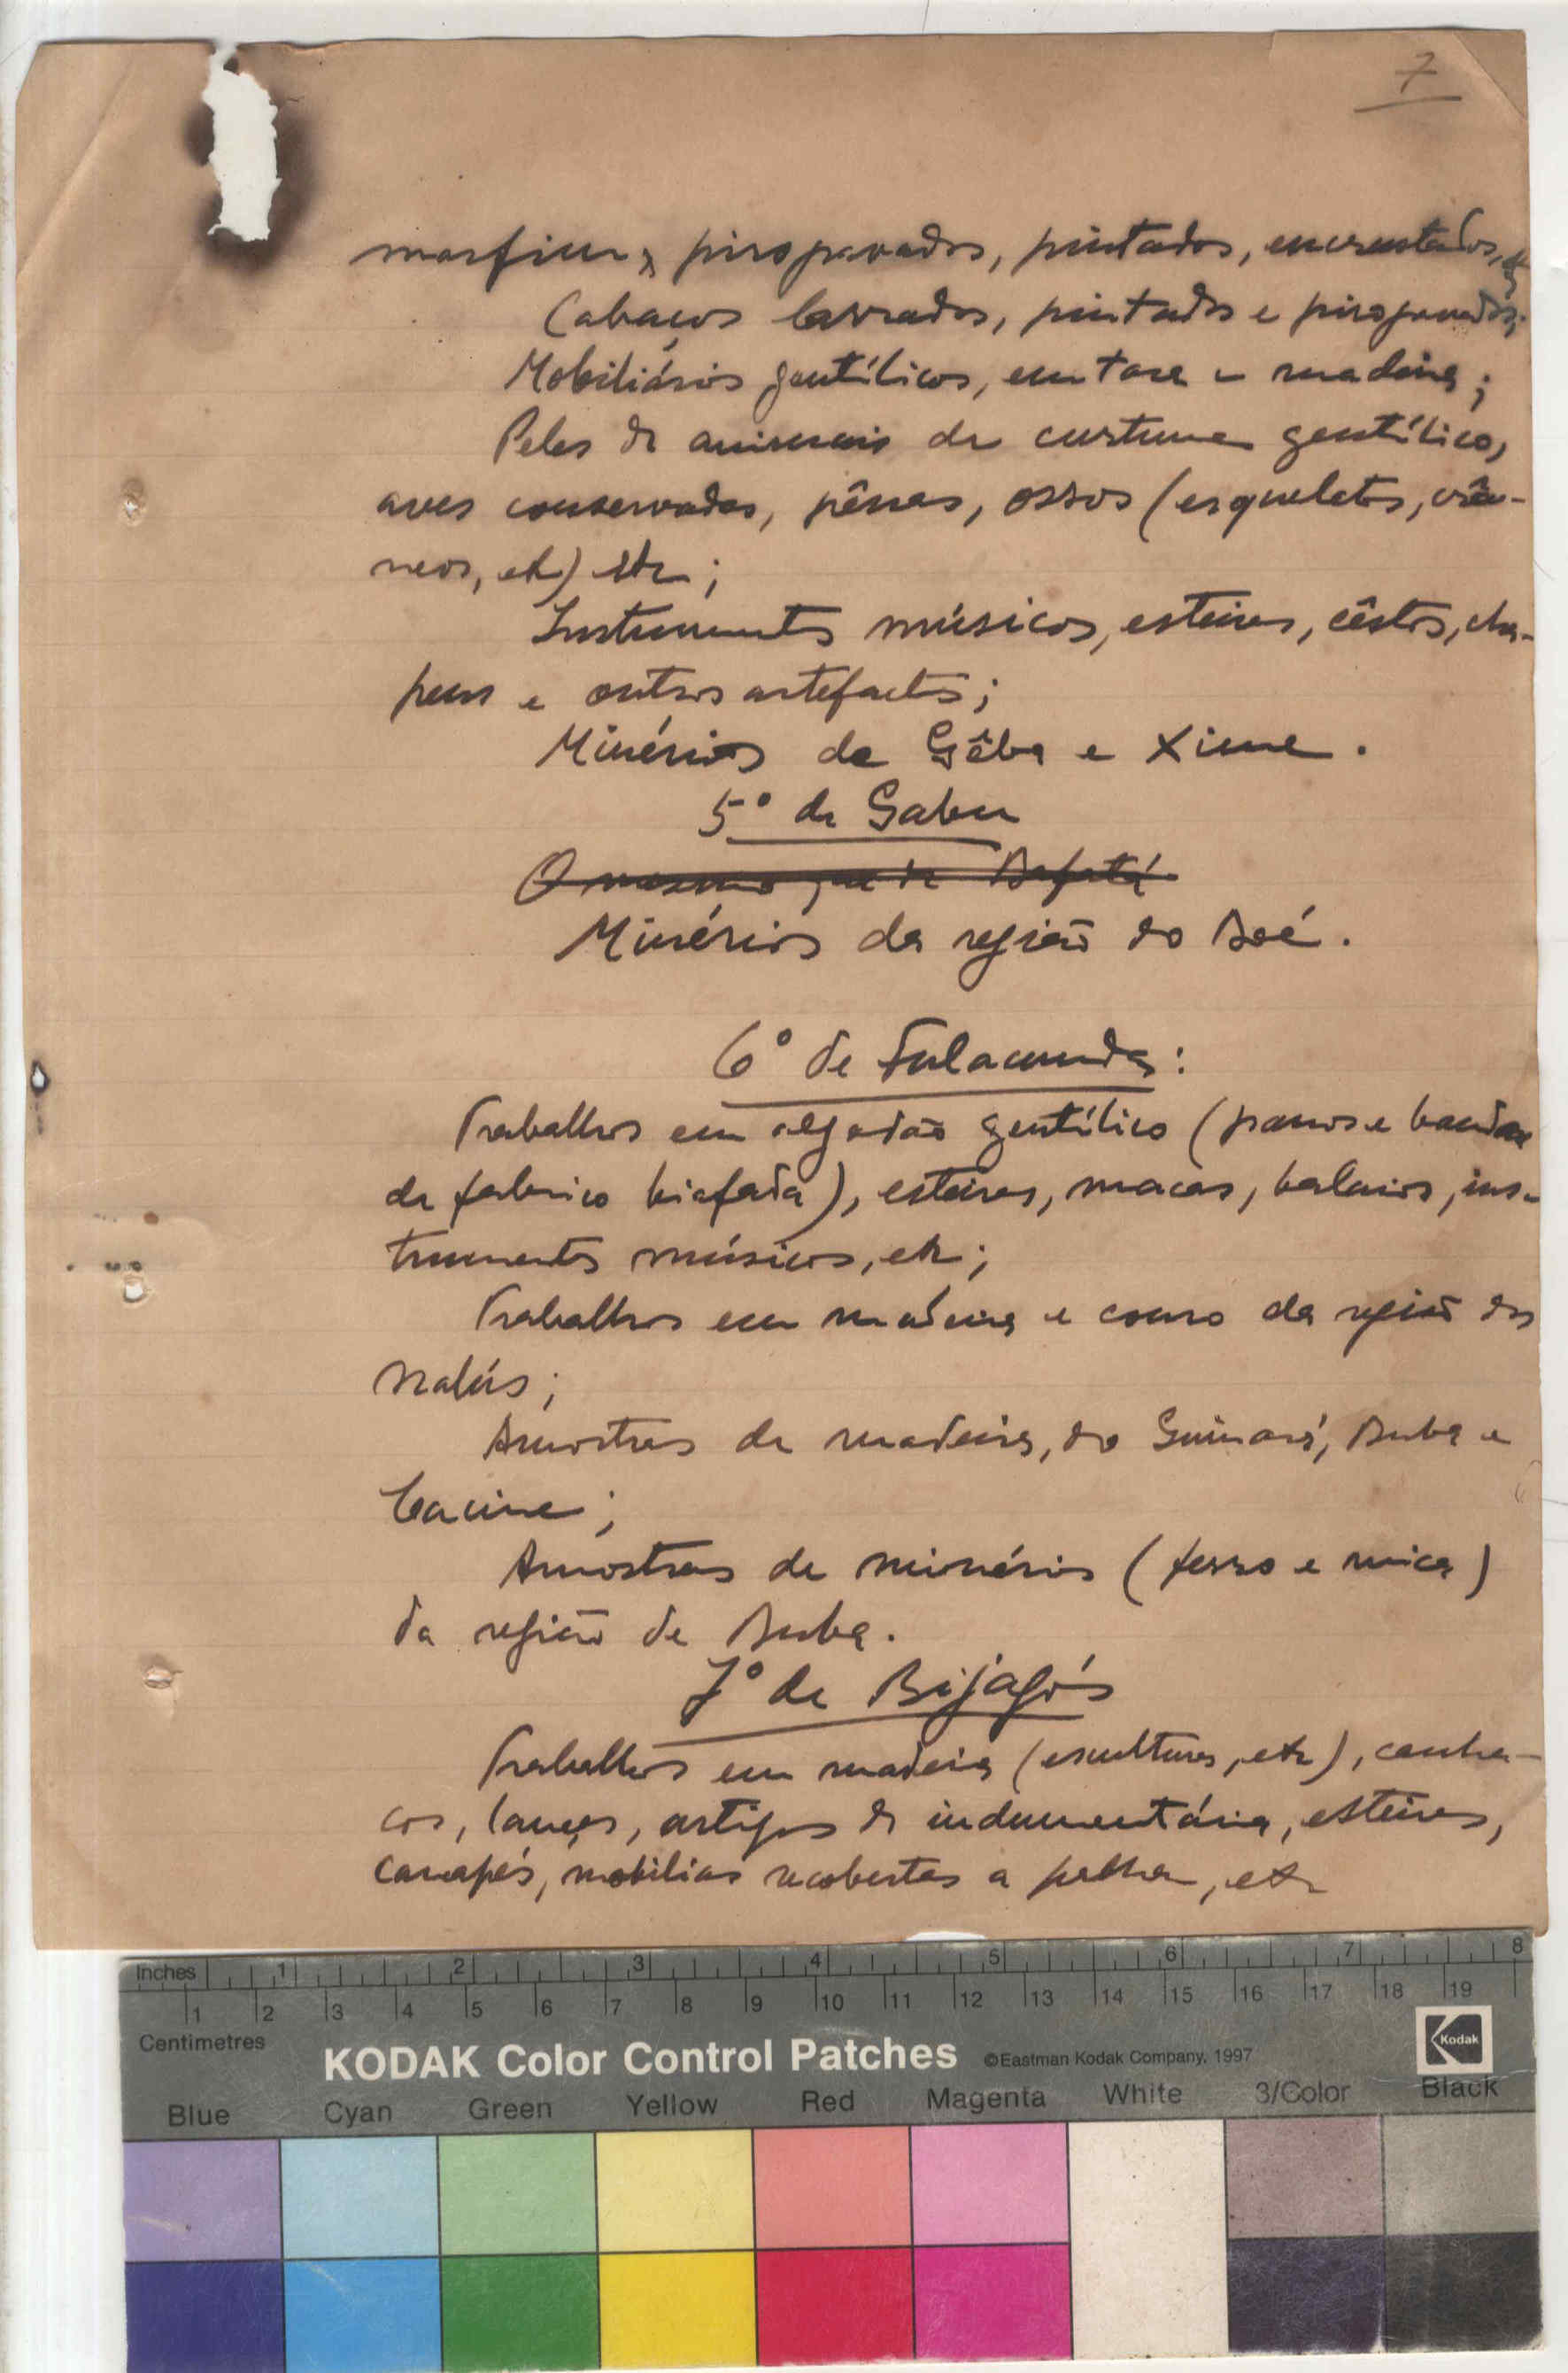 7
marfim, pirogravados, pintados, encrustados, &
Cabaços lavrados, pintados e pirogravados;
Mobiliários gentílicos, em tara e madeira;
Peles de animais de curtume gentílico,
aves conservadas, pênas, ossos (esqueletos, crâ-
neos, etc) etc;
Instrumentos músicos, esteiras, cêstos, cha-
peus e outros artefactos;
Minérios de Gêba e Xime.
5º de Gabu
O mesmo que de Bafatá
Minérios da região do Boé.
6º de Fulacunda:
Trabalhos em algodão gentílico (panos e bandas
de fabrico biafada), esteiras, macas, balaios, ins-
trumentos músicos, etc;
Trabalhos em madeira e couro da região dos
Nalús;
Amostras de madeiras, do Guinará, Buba e
Cacine;
Amostras de minérios (ferro e mica)
da região de Buba.
7º de Bijagós
Trabalhos em madeira (esculturas, etc), canha-
cos, lanças, artigos de indumentária, esteiras,
canapés, mobilias recobertas a palha, etc
Inches 1 2 3 4 5 6 7 8
1 2 3 4 5 6 7 8 9 10 11 12 13 14 15 16 17 18 19
Centimetres
KODAK Color Control Patches ©Eastman Kodak Company, 1997 Kodak
Blue Cyan Green Yellow Red Magenta White 3/Color Black